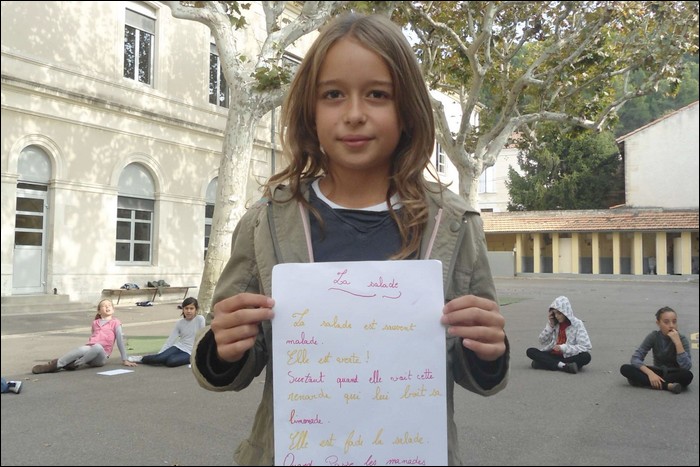 La salade
La salade est souvent
malade.
Elle est verte !
Surtout quand elle voit cette
renarde qui lui boit sa
limonade.
Elle est fade la salade.
Quand les manades